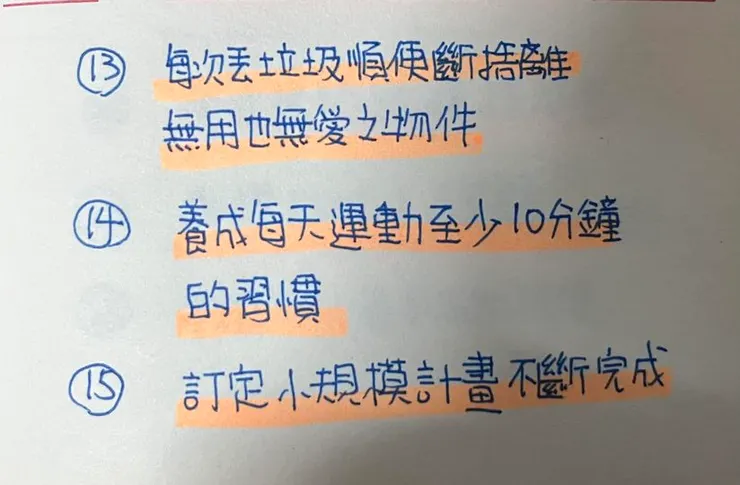 ⑬ 每次丟垃圾順便斷捨離
無用也無愛之物件
⑭ 養成每天運動至少10分鐘
的習慣
⑮ 訂定小規模計畫不斷完成